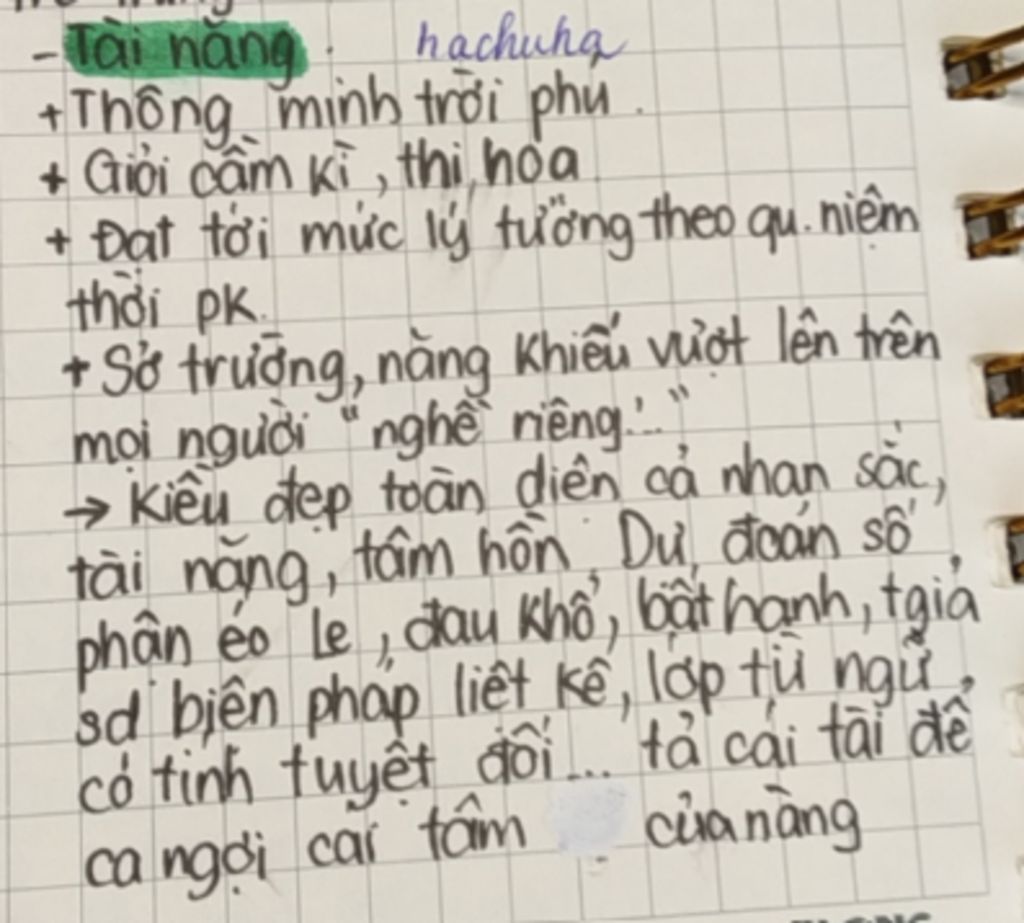 - Tài năng : hachuha
+ Thông minh trời phú.
+ Giỏi cầm kì, thi, họa
+ Đạt tới mức lý tưởng theo qu.niệm
thời pk.
+ Sở trường, năng khiếu vượt lên trên
mọi người "nghề riêng..."
→ Kiều đẹp toàn diện cả nhan sắc,
tài năng, tâm hồn. Dự đoán số
phận éo le, đau khổ, bất hạnh, tgiả
sd biện pháp liệt kê, lớp từ ngữ
có tính tuyệt đối... tả cái tài để
ca ngợi cái tâm của nàng